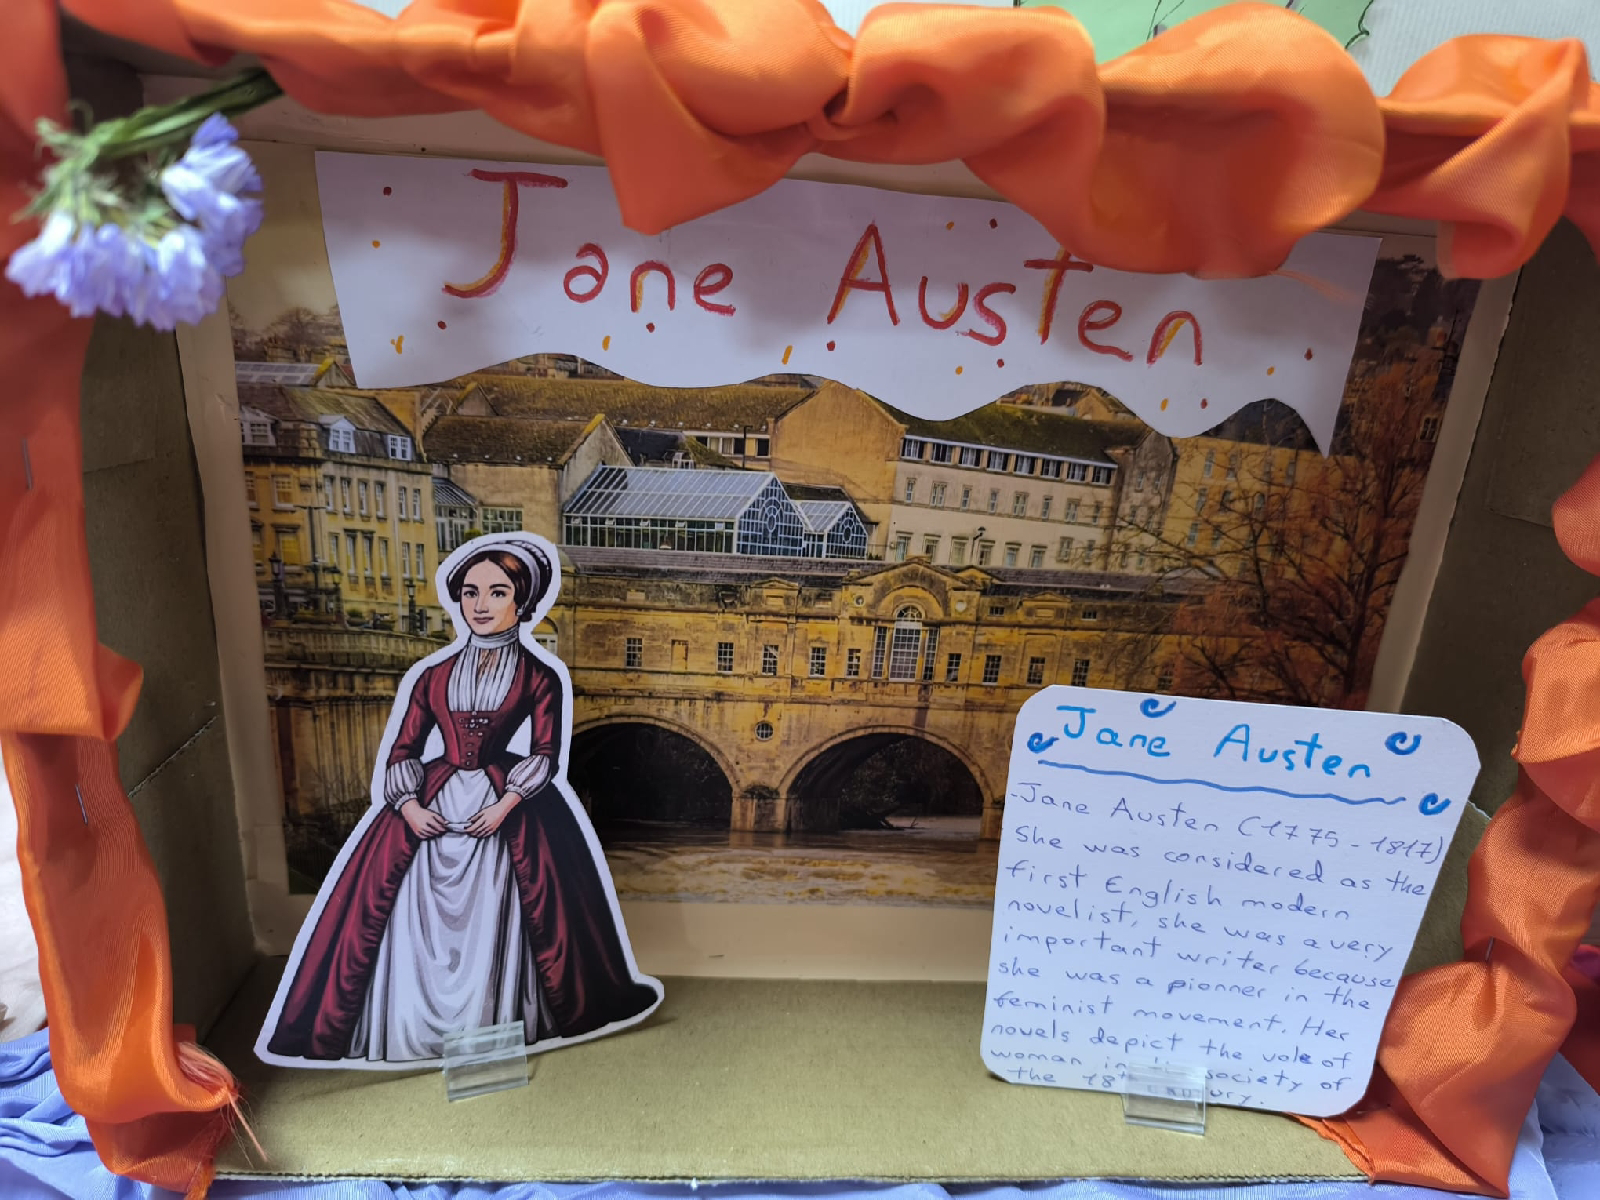 Jane Austen
Jane Austen
-Jane Austen (1775-1817)
She was considered as the
first English modern
novelist, she was a very
important writer because
she was a pionner in the
feminist movement. Her
novels depict the vole of
woman in society of
the 18th